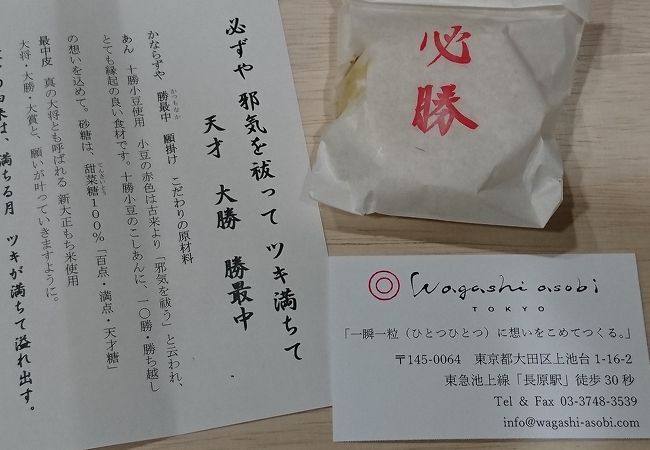 必ずや 邪気を祓って ツキ満ちて
天才 大勝 勝最中
かならずや 勝最中 願掛け こだわりの原材料
かつもなか
あん 十勝小豆使用 小豆の赤色は古来より「邪気を祓う」と云われ、
とても縁起の良い食材です。十勝小豆のこしあんに、一〇勝・勝ち越し
の想いを込めて。砂糖は、甜菜糖100%「百点・満点・天才糖」
てんさいとう
最中皮 真の大将とも呼ばれる 新大正もち米使用
大将・大勝・大賞と、願いが叶っていきますように。
は、満ちる月 ツキが満ちて溢れ出す。
必
勝
wagashi asobi
TOKYO
「一瞬一粒（ひとつひとつ）に想いをこめてつくる。」
〒145-0064 東京都大田区上池台 1-16-2
東急池上線「長原駅」徒歩 30 秒
Tel & Fax 03-3748-3539
info@wagashi-asobi.com